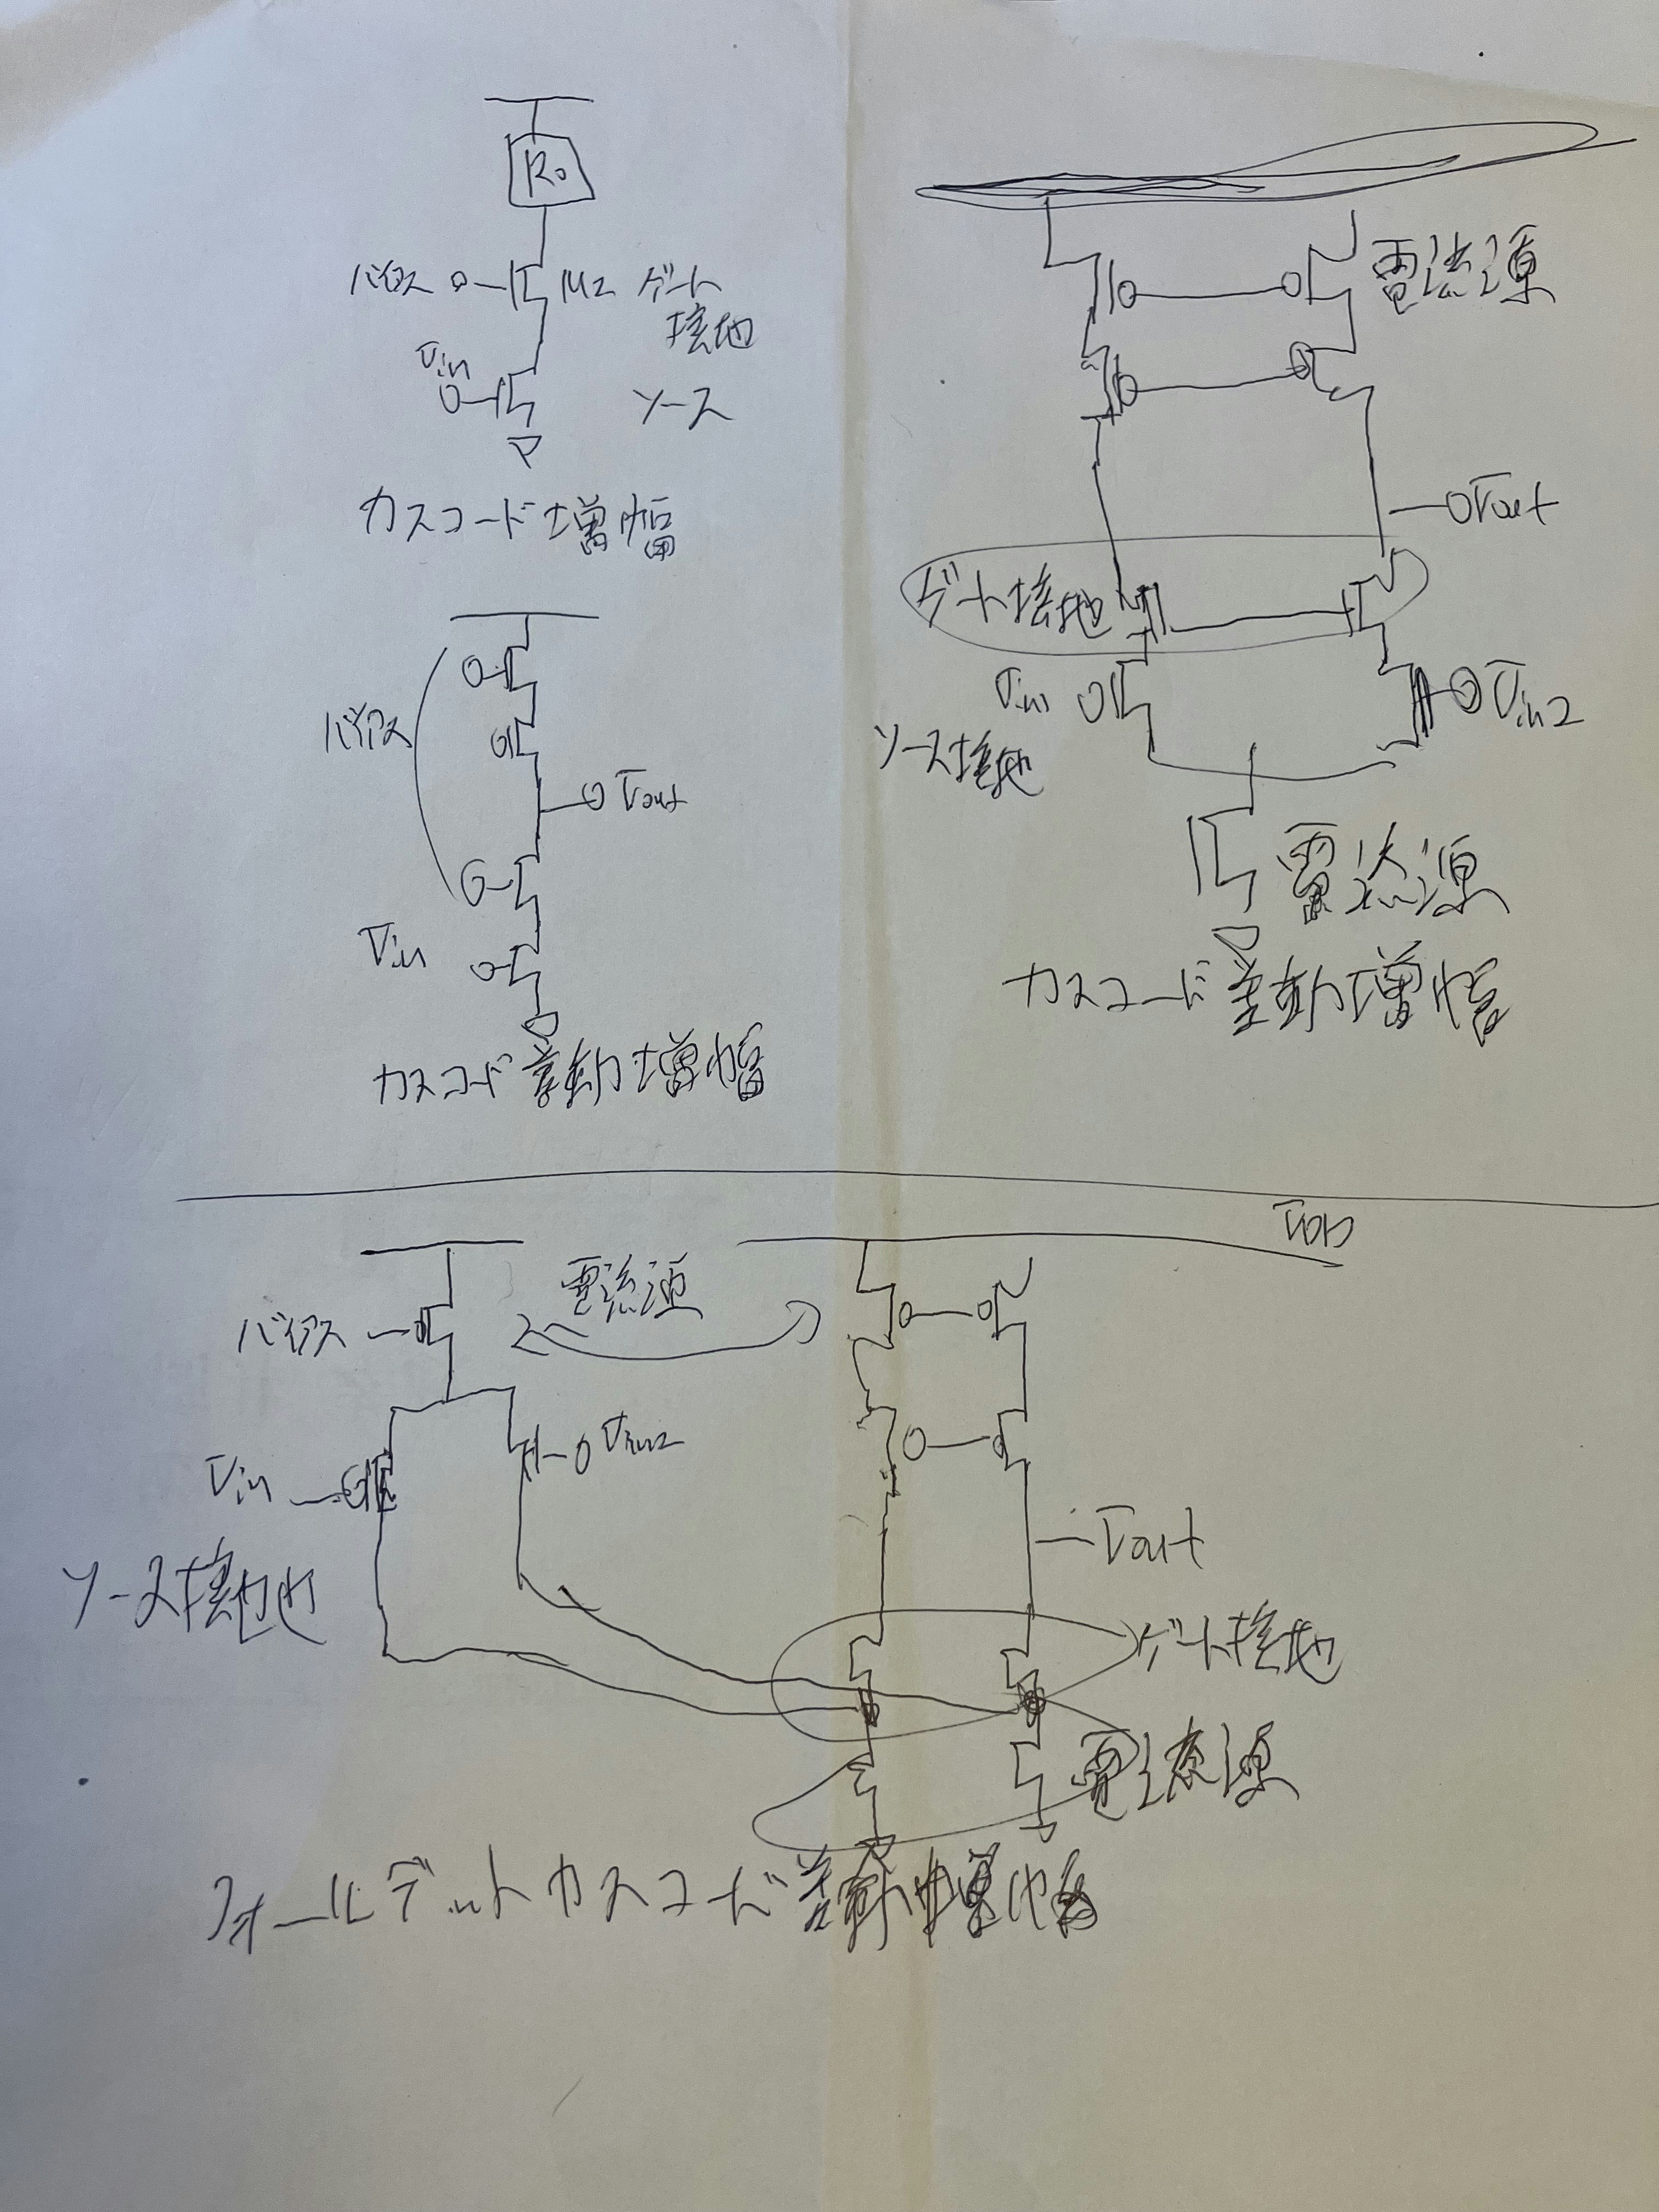 R0
バイアス
M2
ゲート
接地
Vin
ソース
カスコード増幅
バイアス
Vout
Vin
カスコード差動増幅
電流源
Vout
ゲート接地
Vin1
Vin2
ソース接地
電流源
カスコード差動増幅
VDD
電流源
バイアス
Vin2
Vin
Vout
ソース接地
ゲート接地
電流源
フォールデットカスコード差動増幅